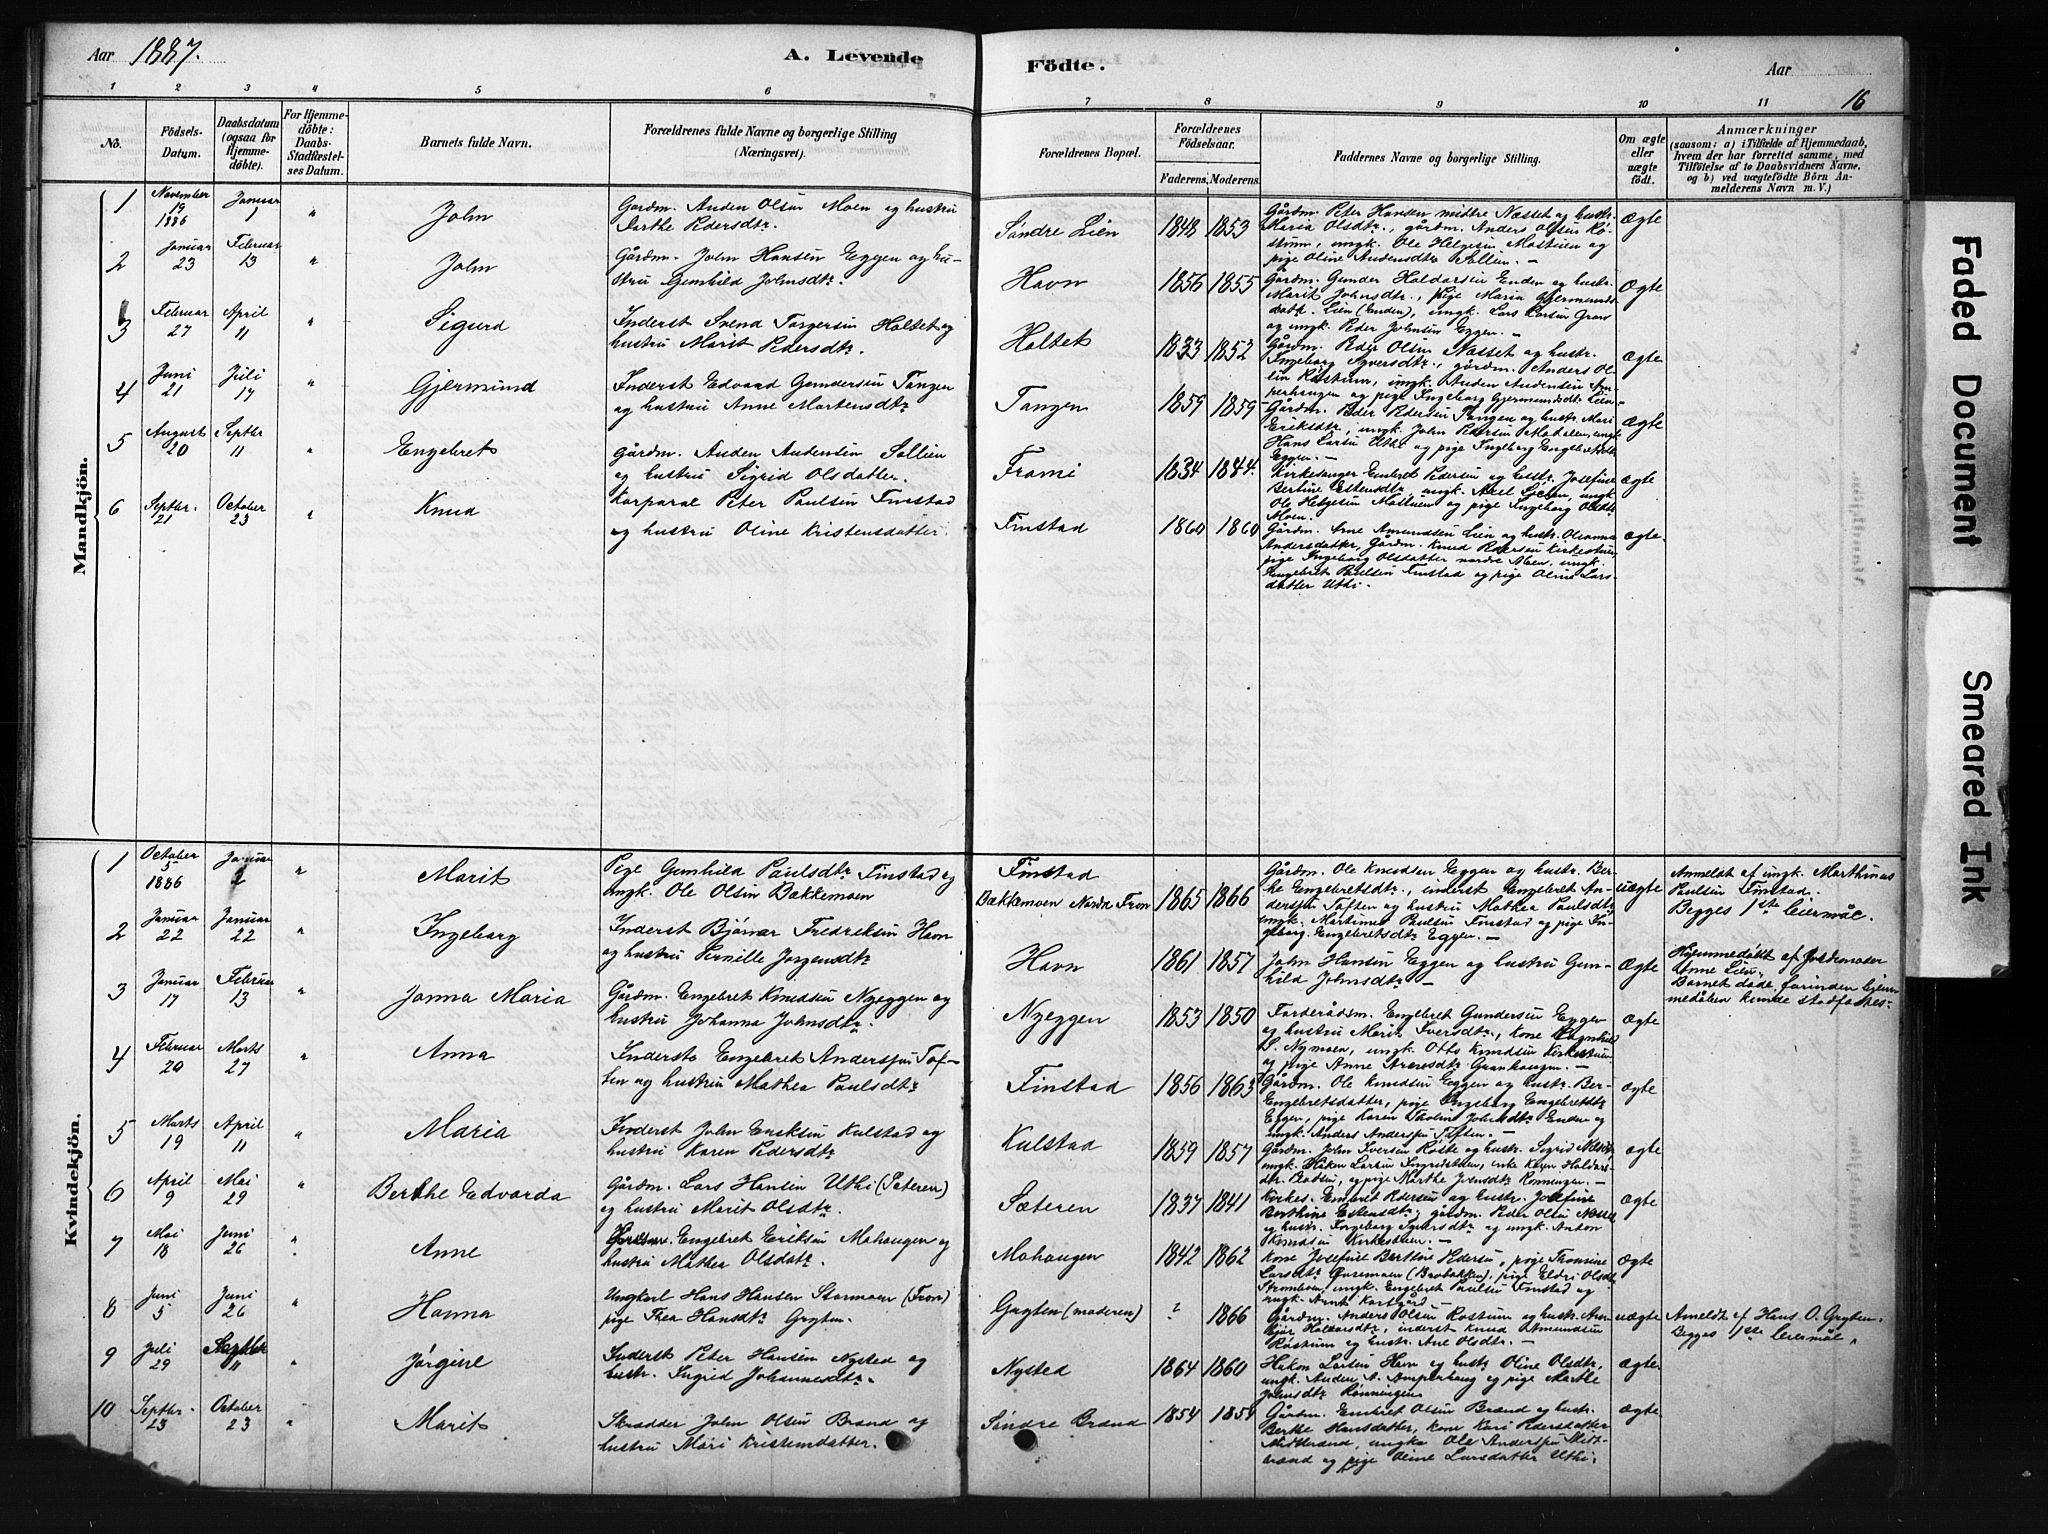 Aar 1887.
A. Levende Födte.
Aar
16
1 2 3 4 5 6 7 8 9 10 11
No.
Födsels-Datum.
Daabsdatum (ogsaa for Hjemmedöbte).
For Hjemmedöbte: Daabs-Stadfæstelses Datum.
Barnets fulde Navn.
Forældrenes fulde Navne og borgerlige Stilling (Næringsvei).
Forældrenes Bopæl.
Forældrenes Födselsaar.
Faderens. Moderens.
Faddernes Navne og borgerlige Stilling.
Om ægte eller uægte födt.
Anmærkninger
(saasom: a) i Tilfælde af Hjemmedaab,
hvem der har forrettet samme, med
Tilföielse af to Daabsvidners Navne.
og b) ved uægtefödte Börn An-
melderens Navn m. V.)
Mandkjön.
1 November 19 1886 Januar 1 " John
Gårdm. Anden Olsen Moen og hustru
Marthe Pedersdtr.
Søndre Lien 1848 1853
Gårdm. Peter Hansen midtre Næsset og hustr.
Maria Olsdtr., gårdm. Anders Olsen Rø-
stum, ungk. Ole Helgesen Mostuen og
pige Oline Andensdtr Sollien. —
Ægte
2 Januar 23 Februar 13 " John
Gårdm. John Hansen Eggen og hu-
stru Gunhild Johnsdtr.
Havn 1856 1855
Gårdm. Gunder Haldorsen Enden og hustr.
Marit Johnsdtr., pige Maria Gjermunds-
datt. Lien (Enden), ungk. Lars Larsen
og ungk. Peder Johnsen Eggen. —
Ægte
3 Februar 27 April 11 " Sigurd
Inderst Svend Torgersen Holtet og
hustru Marit Pedersdtr.
Holtet 1833 1852
Gårdm. Peder Olsen Næsset og hustr.
Ingeborg Syversdtr., gårdm. Anders Ol-
sen Røstum, ungk. Anden Andensen Am-
perhaugen og pige Ingeborg Gjermundsdt. Lien
Ægte
4 Juni 21 Juli 17 " Gjermund
Inderst Edvard Gundersen Tangen
og hustru Anne Mortensdtr.
Tangen 1859 1859
Gårdm. Peder Pedersen Tangen og hustr. Mari
Eriksdtr., ungk. John Pedersen
Hans Larsen Uthi og pige Ingeborg Engebretsdtr
Eggen. —
Ægte
5 August 20 Septbr 11 " Engebret
Gårdm. Anden Andensen Sollien
og hustru Sigrid Olsdatter.
Frami 1834 1844.
Kirkesanger Embret Pedersen og hustr. Josefine
Bertine Estensdtr ungk. Axel Lien, ungk.
Ole Helgesen Mostuen og pige Ingeborg Olsdtr
Moen.
ægte
6 Septbr. 21 October 23 " Knud
Korporal Peter Paulsen Finstad
og hustru Oline Kristensdatter.
Finstad 1860 1860
Gårdm. Arne Amundsen Lien og hustr. Oleanna
Andersdatter, Gårdm. Knud Pedersen Kirkestuen,
pige Ingeborg Olsdatter nordre Moen, ungk.
Engebret Paulsen Finstad og pige Oline Lars-
datter Uthi.
ægte.
Kvindekjön.
1 October 5 1886 Januar 2 " Marit
Pige Gunhild Paulsdtr Finstad og
ungk. Ole Olsen Bækkemoen
Finstad
Bækkemoen Nordre Fron 1865 1866
Gårdm. Ole Knudsen Eggen og hustr. Ber-
the Engebretsdtr., inderst Engebret An-
derssen Toften og hustru Mathea Paulsdtr
ungk. Martinus Paulsen Finstad og pige In-
geborg Engebretsdtr Eggen. —
uægte
Anmeldt af ungk. Marthinus
Paulsen Finstad.
Begges 1ste leiermål.
2 Januar 22 Januar 22 " Ingeborg
Inderst Bjørnar Fredriksen Havn
og hustru Pernille Jørgensdtr
Havn 1861 1857
John Hansen Eggen og hustru Gun-
hild Johnsdtr. —
Ægte
Hjemmedöbt af Jordemoder
Anne Lien.
Barnet døde, førinden hjem-
medåben kunde stadfæstes.
3 Januar 17 Februar 13 " Janna Maria
Gårdm. Engebret Knudsen Nyeggen og
hustru Johanna Johnsdtr.
Nyeggen 1853 1850
Forderådsm. Engebret Gundersen Eggen
og hustru Marit Iversdtr., kone Ragnhild
S. Nymoen, ungk. Otto Knudsen Kirkestuen
og pige Anne Arnesdtr Granhaugen. —
ægte
4 Februar 20 Marts 27 " Anna
Inderste Engebret Anderssen Tof-
ten og hustru Mathea Paulsdtr
Finstad 1856 1863
Gårdm. Ole Knudsen Eggen og hustr. Ber-
Engebretsdatter, pige Ingeborg Engebretsdtr
Eggen, pige Karen Johnsdtr Enden og
ungk. Anders Anderssen Toften. —
ægte
5 Marts 19 April 11 " Maria
Inderst John Eriksen Kulstad og
hustru Karen Pedersdtr
Kulstad 1859 1857
Gårdm. John Iversen Røste og hustr. Sigrid
ungk. Håkon Larsen enke Karen Haldors-
dtr. og pige Marthe Jensdtr Rønningen. —
ægte
6 April 9 Mai 29 " Berthe Edvarda
Gårdm. Lars Hansen Uthi (Sæteren)
og hustru Marit Olsdtr.
Sæteren 1837 1841
Kirkes. Embret Pedersen og hustr. Josefine
Berthine Estensdtr, gårdm. Peder Olsen Næsset
og hustr. Ingeborg Syversdtr og ungk. Anton
Knudsen Kirkestuen. —
Ægte
7 Mai 18 Juni 26 " Anne
Engebret Eriksen Mohaugen og
hustru Mathea Olsdatr.
Mohaugen 1842 1862
Kone Josefine Bertine Pedersen, pige Thomine
Larsdtr. (Brobakken), pige Eldri Olsdtr
ungk. Engebret Paulsen Finstad og
ungk.
ægte
8 Juni 5 Juni 26 " Hanna
Ungkarl Hans Hansen Stormoen (Fron)
pige Thea Hansdtr Gryten.
Gryten (moderen) ? 1866
Gårdm. Anders Olsen Rostum og hustr.
Haldorsdtr, inderst Knud Amundsen
Røstum og hustr. Ane Olsdtr.
uægte
Anmeldt af Hans O. Gryten.
Begges 1ste leiermål.
9 Juli 29 Septbr 11 " Jørgine
Inderst Peter Hansen Nysted og
hustr. Ingrid Johannesdtr.
Nysted 1864 1860
Håkon Larsen Havn og hustr Oline Olsdtr,
ungk. Anden A. Amperhaug og pige Marthe
Johnsdtr Rønningen.
ægte.
10 Septbr. 23 October 23 " Marit
Skrædder John Olsen Brænd og
hustru Mari Kristensdatter.
Søndre Brænd 1854 1854
Gårdm. Embret Olsen Brænd og hustr.
Berthe Hansdatter, kone Kari Pedersdatter
Midtbrænd, ungk. Ole Anderssen Midt-
brænd og pige Oline Larsdatter Uthi.
ægte
Faded Document
Smeared Ink